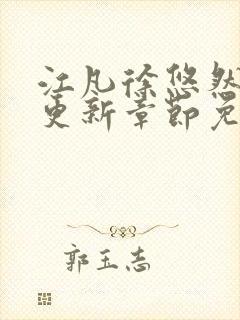 江凡徐悠然
更新章节免
郭玉志